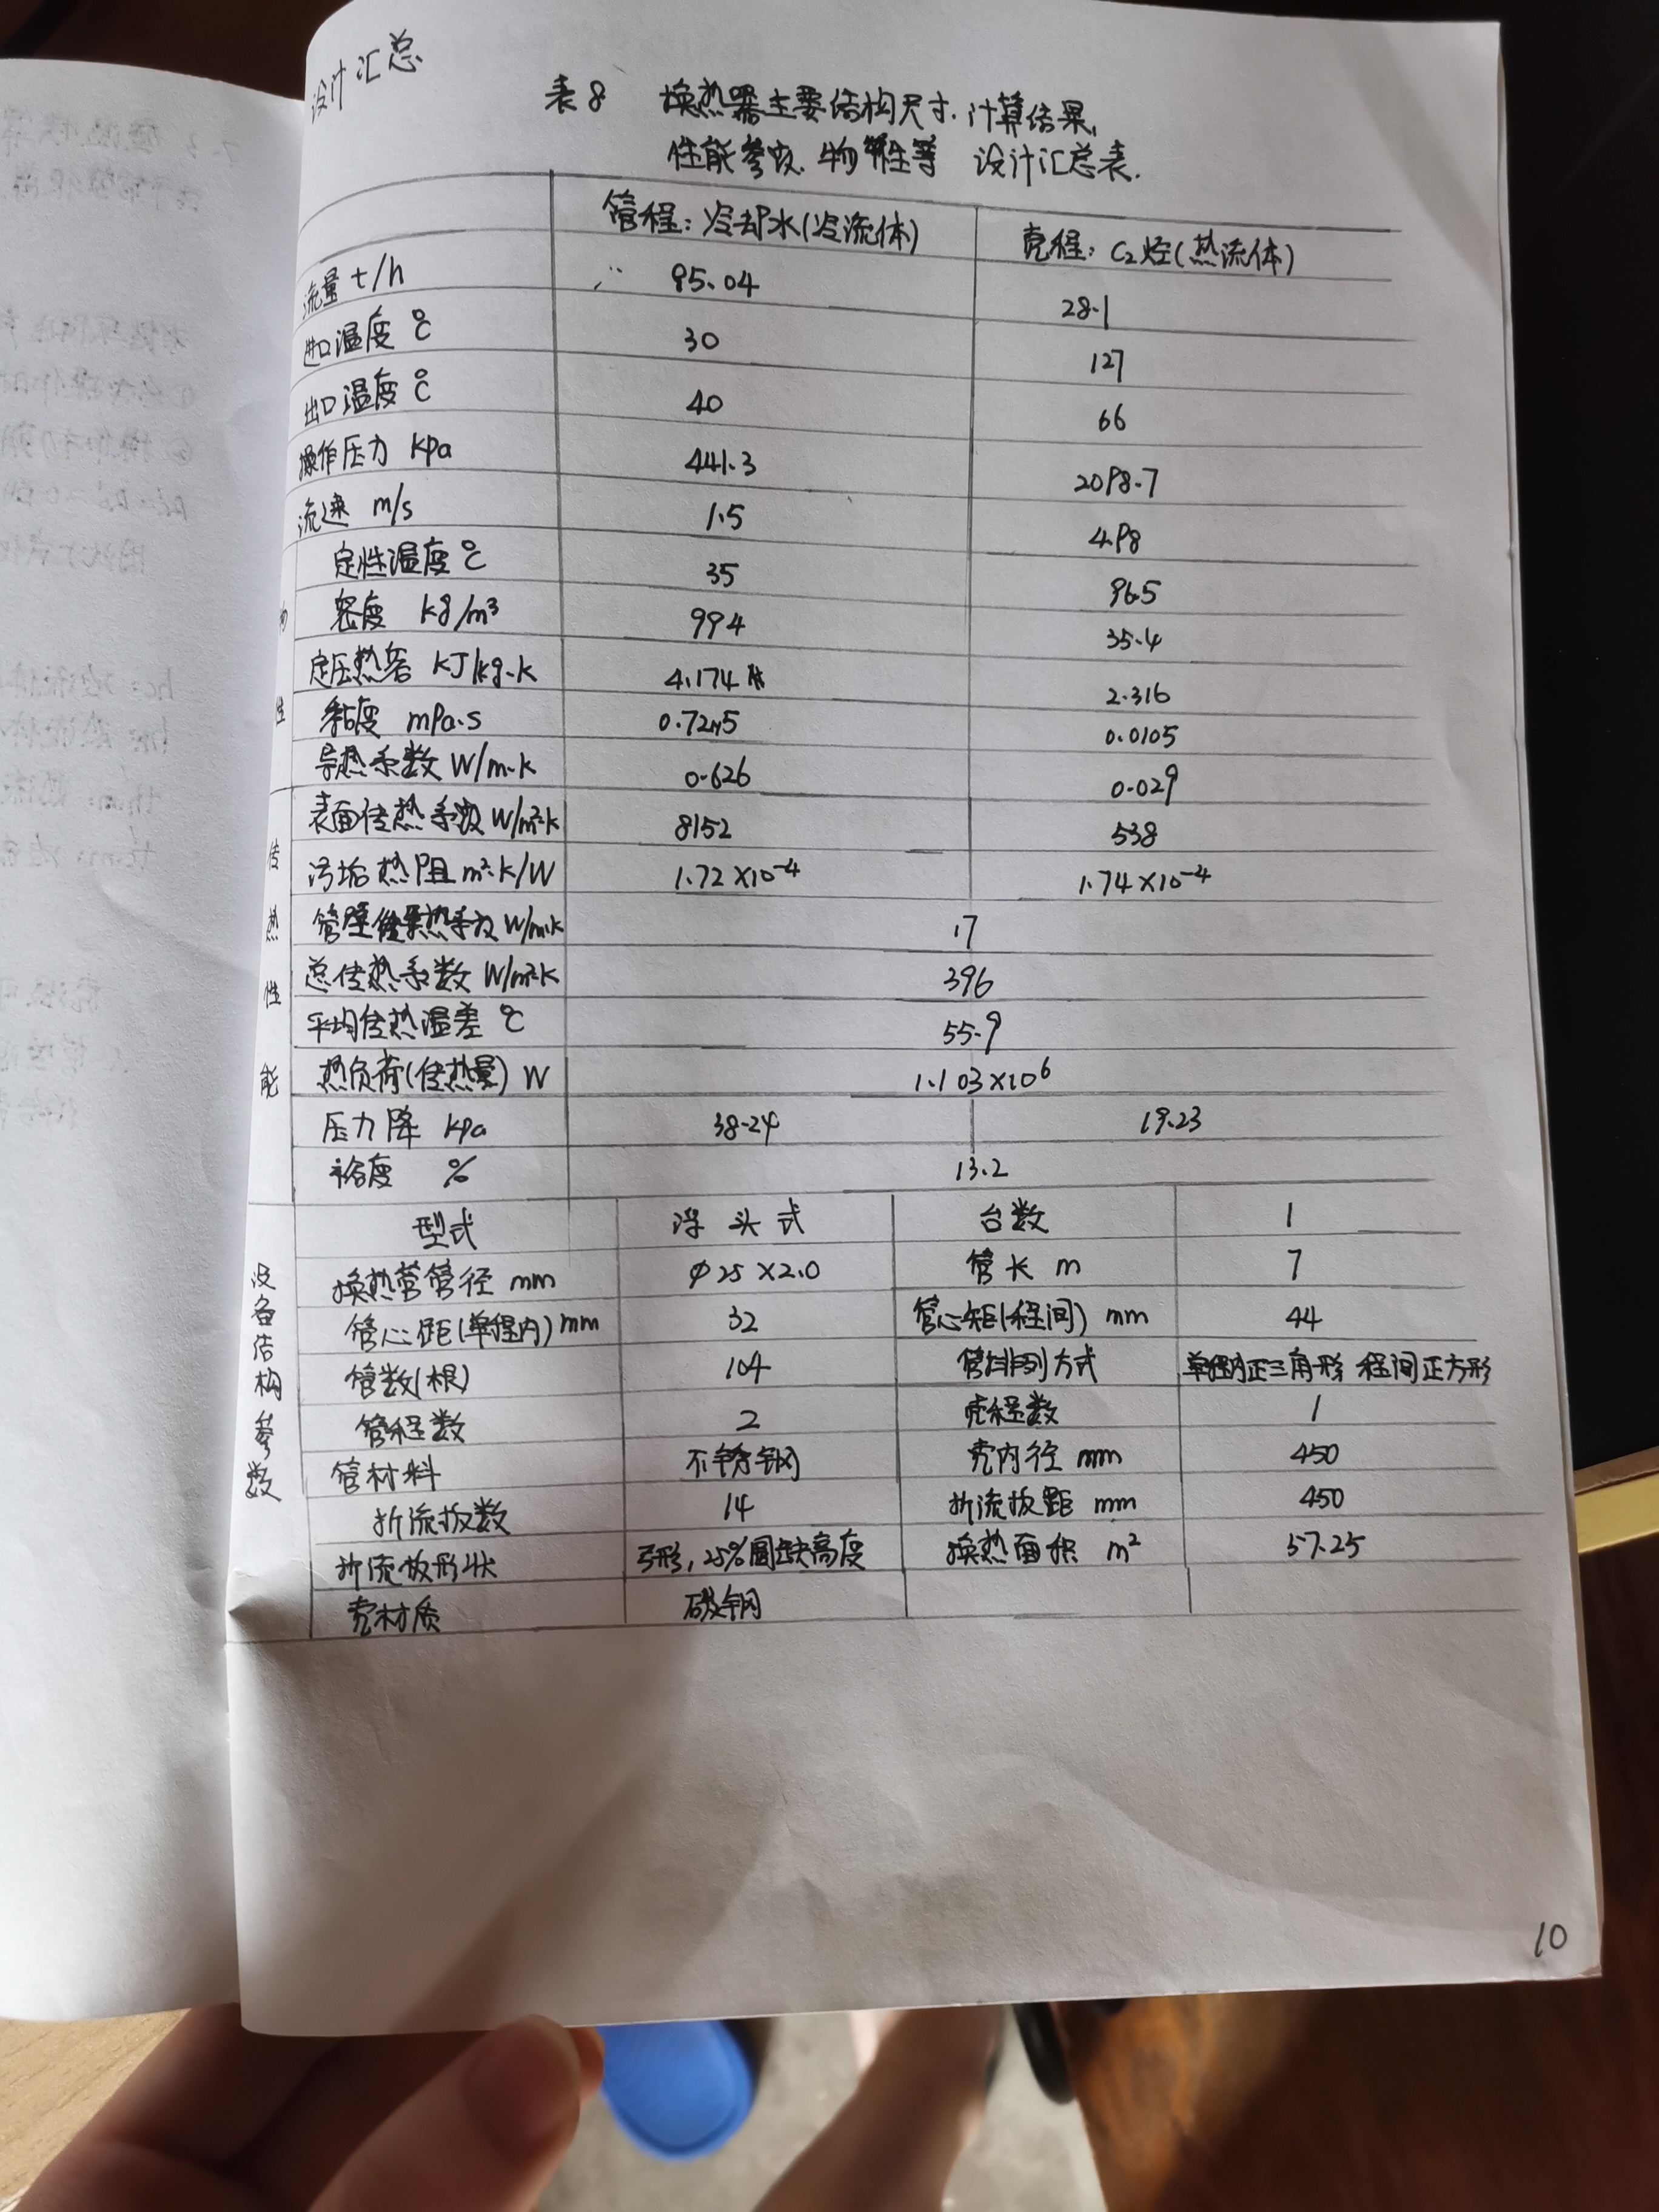 设计汇总
表8 换热器主要结构尺寸、计算结果、
性能参数、物性等 设计汇总表.
管程：冷却水(冷流体) 壳程：C₂烃(热流体)
流量 t/h 95.04 28.1
进口温度 ℃ 30 127
出口温度 ℃ 40 66
操作压力 kpa 441.3 2098.7
流速 m/s 1.5 4.98
物性
定性温度 ℃ 35 96.5
密度 kg/m³ 994 35.4
定压热容 kJ/kg·k 4.174 2.316
黏度 mPa·s 0.7245 0.0105
导热系数 W/m·k 0.626 0.029
传热性能
表面传热系数 W/m²·k 8152 538
污垢热阻 m²·k/W 1.72×10⁻⁴ 1.74×10⁻⁴
管壁导热系数 W/m·k 17
总传热系数 W/m²·k 396
平均传热温差 ℃ 55.9
热负荷(传热量) W 1.103×10⁶
压力降 kpa 38.24 19.23
裕度 % 13.2
设备结构参数
型式 浮头式 台数 1
换热管管径 mm φ25×2.0 管长 m 7
管心距(单程内) mm 32 管心矩(程间) mm 44
管数(根) 104 管排列方式 单程内正三角形 程间正方形
管程数 2 壳程数 1
管材料 不锈钢 壳内径 mm 450
折流板数 14 折流板距 mm 450
折流板形状 弓形，25%圆缺高度 换热面积 m² 57.25
壳材质 碳钢
10